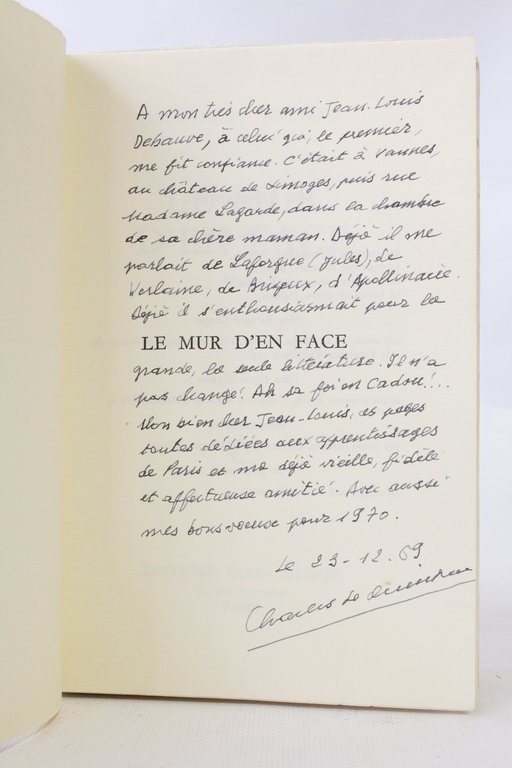 A mon très cher ami Jean-Louis
Debauve, à celui qui, le premier,
me fit confiance. C'était à Vannes,
au château de Limoges, puis rue
Madame Lagarde, dans la chambre
de sa chère maman. Déjà il me
parlait de Laforgue (Jules), de
Verlaine, de Brizeux, d'Apollinaire.
Déjà il s'enthousiasmait pour la
LE MUR D'EN FACE
grande, la seule littérature. Il n'a
pas changé! Ah sa foi en Cadou!...
Mon bien cher Jean-Louis, ces pages
toutes dédiées aux apprentissages
de Paris et ma déjà vieille, fidèle
et affectueuse amitié. Avec aussi
mes bons voeux pour 1970.
Le 23-12.69
Charles Le Quintrec